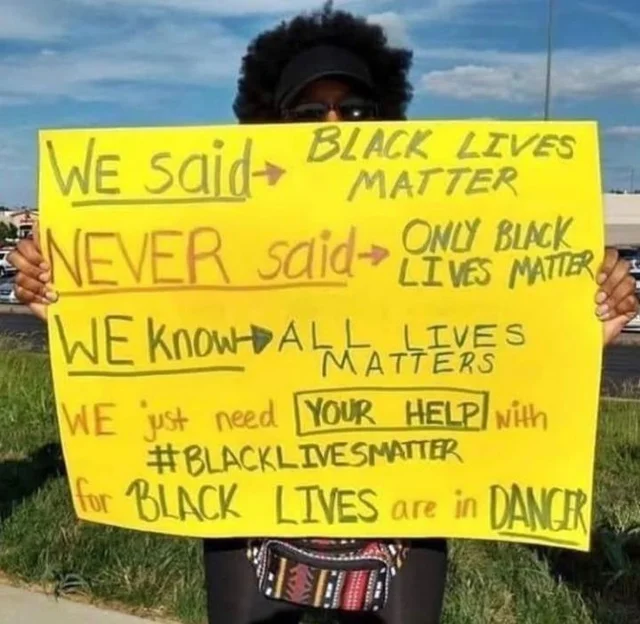 WE said→ BLACK LIVES
MATTER
NEVER said→ ONLY BLACK
LIVES MATTER
WE Know→ ALL LIVES
MATTERS
WE just need YOUR HELP with
#BLACKLIVESMATTER
for BLACK LIVES are in DANGER